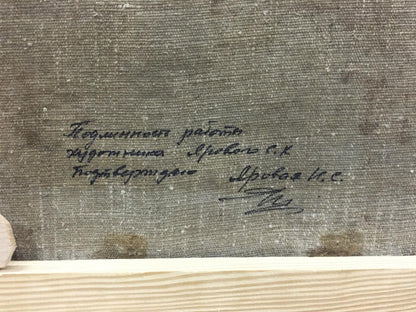 Подлинность работы
художника Ярового С.К
подтверждаю Яровая И.С.